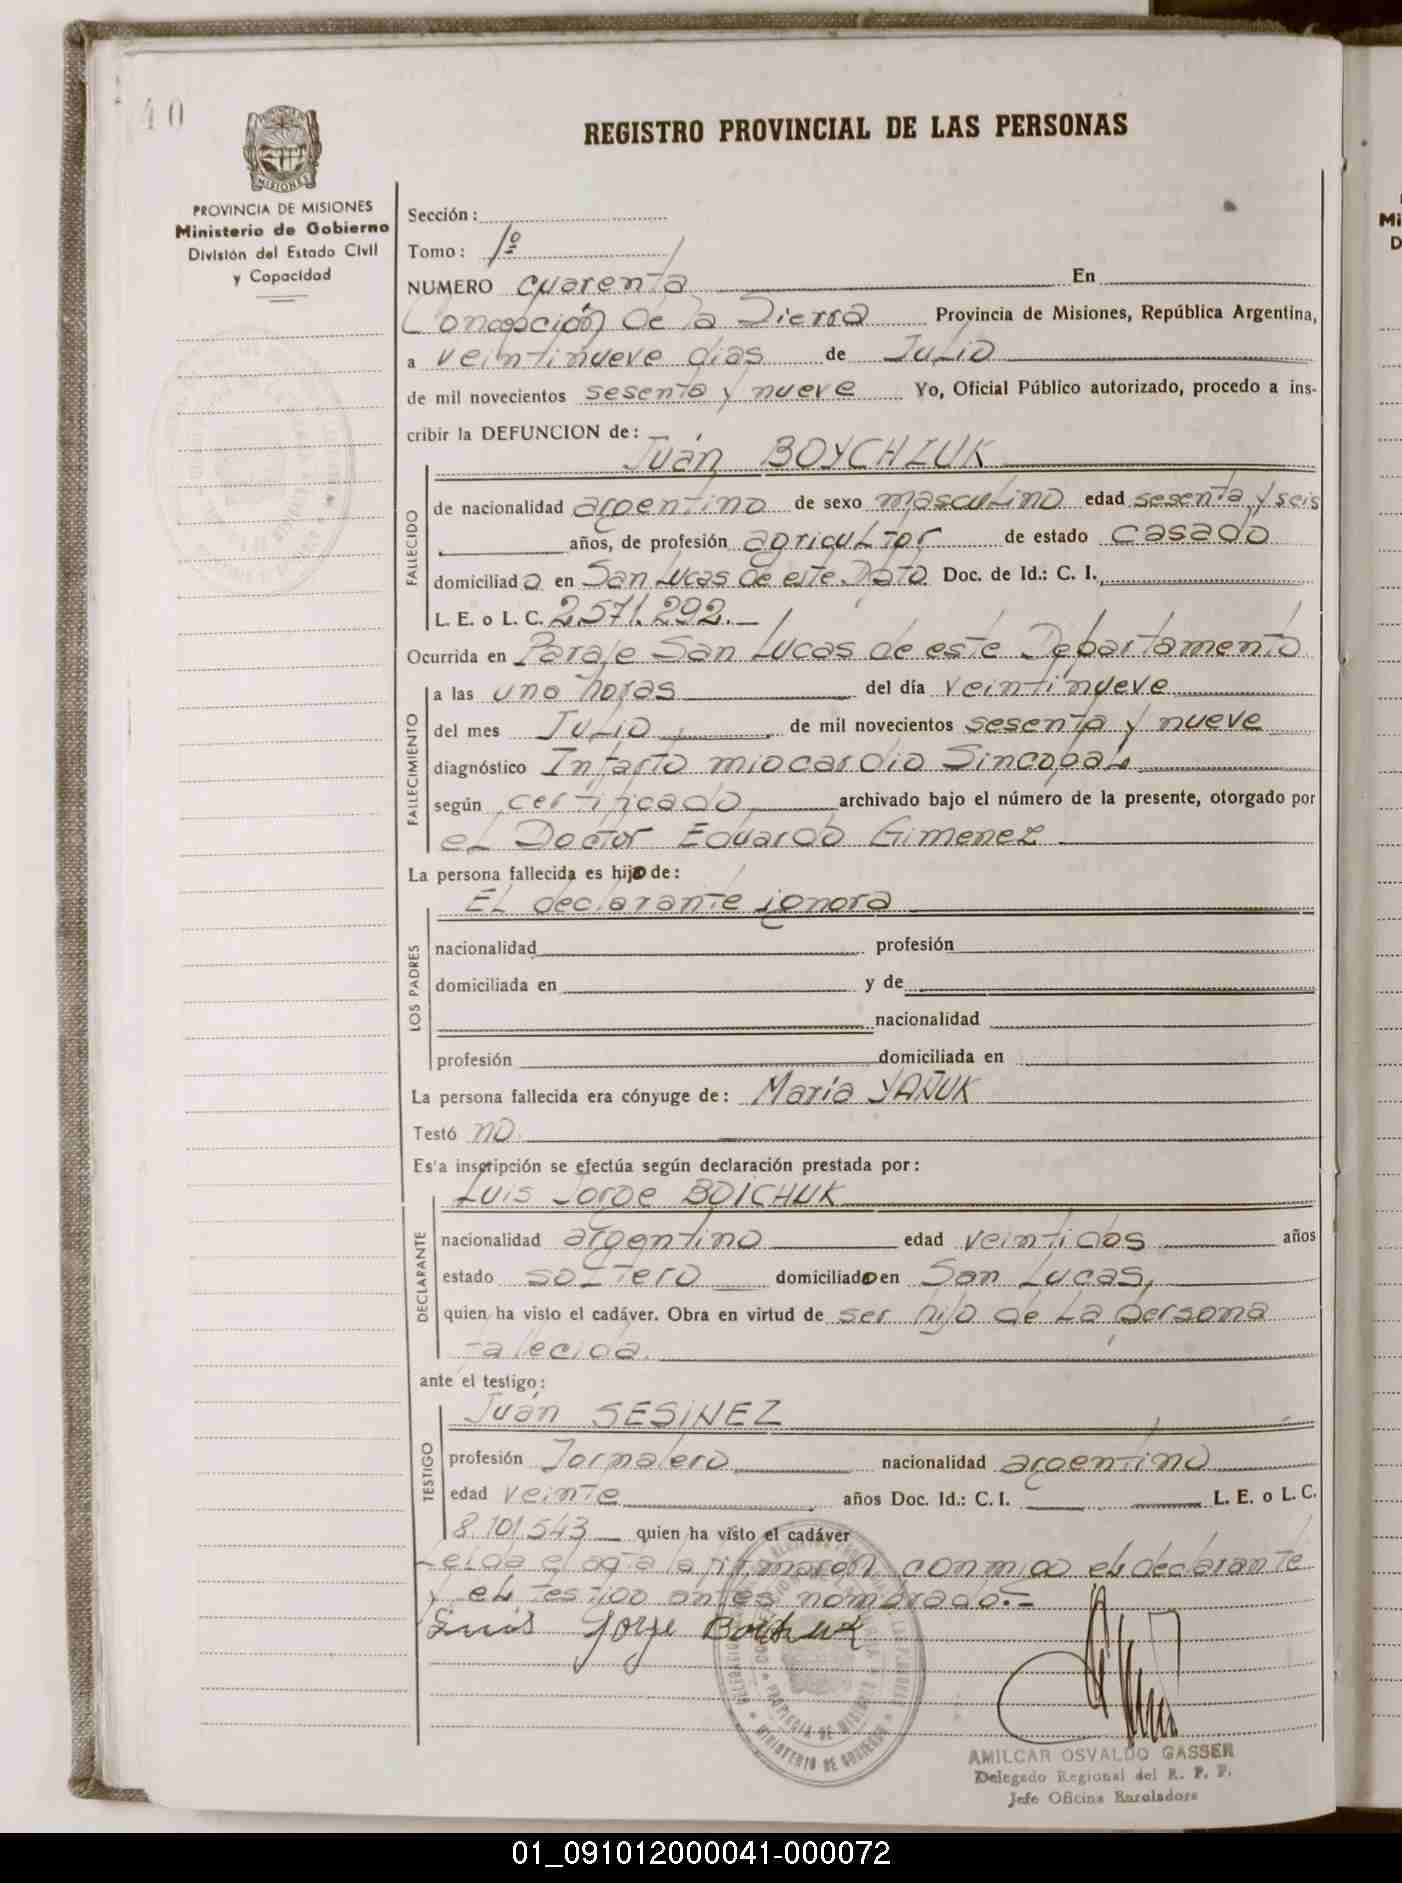 40
MISIONES
REGISTRO PROVINCIAL DE LAS PERSONAS
PROVINCIA DE MISIONES
Ministerio de Gobierno
División del Estado Civil
y Capacidad
Sección:
Tomo: 1º
NUMERO cuarenta En
Concepción de la Sierra Provincia de Misiones, República Argentina,
a veintinueve dias de Julio
de mil novecientos sesenta y nueve Yo, Oficial Público autorizado, procedo a ins-
cribir la DEFUNCION de:
Juán BOYCHZUK
FALLECIDO
de nacionalidad argentino de sexo masculino edad sesenta y seis
años, de profesión agricultor de estado casado
domiciliado en San Lucas de este Dpto Doc. de Id.: C. I.
L. E. o L. C. 2.571.292.-
Ocurrida en Paraje San Lucas de este Departamento
FALLECIMIENTO
a las uno horas del día veintinueve
del mes Julio de mil novecientos sesenta y nueve
diagnóstico Infarto miocardio Sincopal
según certificado archivado bajo el número de la presente, otorgado por
el Doctor Eduardo Gimenez
La persona fallecida es hijo de:
LOS PADRES
El declarante ignora
nacionalidad profesión
domiciliada en y de
nacionalidad
profesión domiciliada en
La persona fallecida era cónyuge de: María YAÑUK
Testó no.
Es'a inscripción se efectúa según declaración prestada por:
DECLARANTE
Luis Jorge BOICHUK
nacionalidad argentino edad veintidos años
estado soltero domiciliado en San Lucas,
quien ha visto el cadáver. Obra en virtud de ser hijo de la persona
fallecida.
ante el testigo:
TESTIGO
Juán SESINEZ
profesión Jornalero nacionalidad argentino
edad veinte años Doc. Id.: C. I. L. E. o L. C.
8.101.543 quien ha visto el cadáver
Leida el acta la firmaron conmigo el declarante
y el testigo antes nombrado.-
Luis Jorje Boichuk
PROVINCIA DE MISIONES
MINISTERIO DE GOBIERNO
AMILCAR OSVALDO GASSER
Delegado Regional del R. P. P.
Jefe Oficina Raroladora
Mi
D
01_091012000041-000072